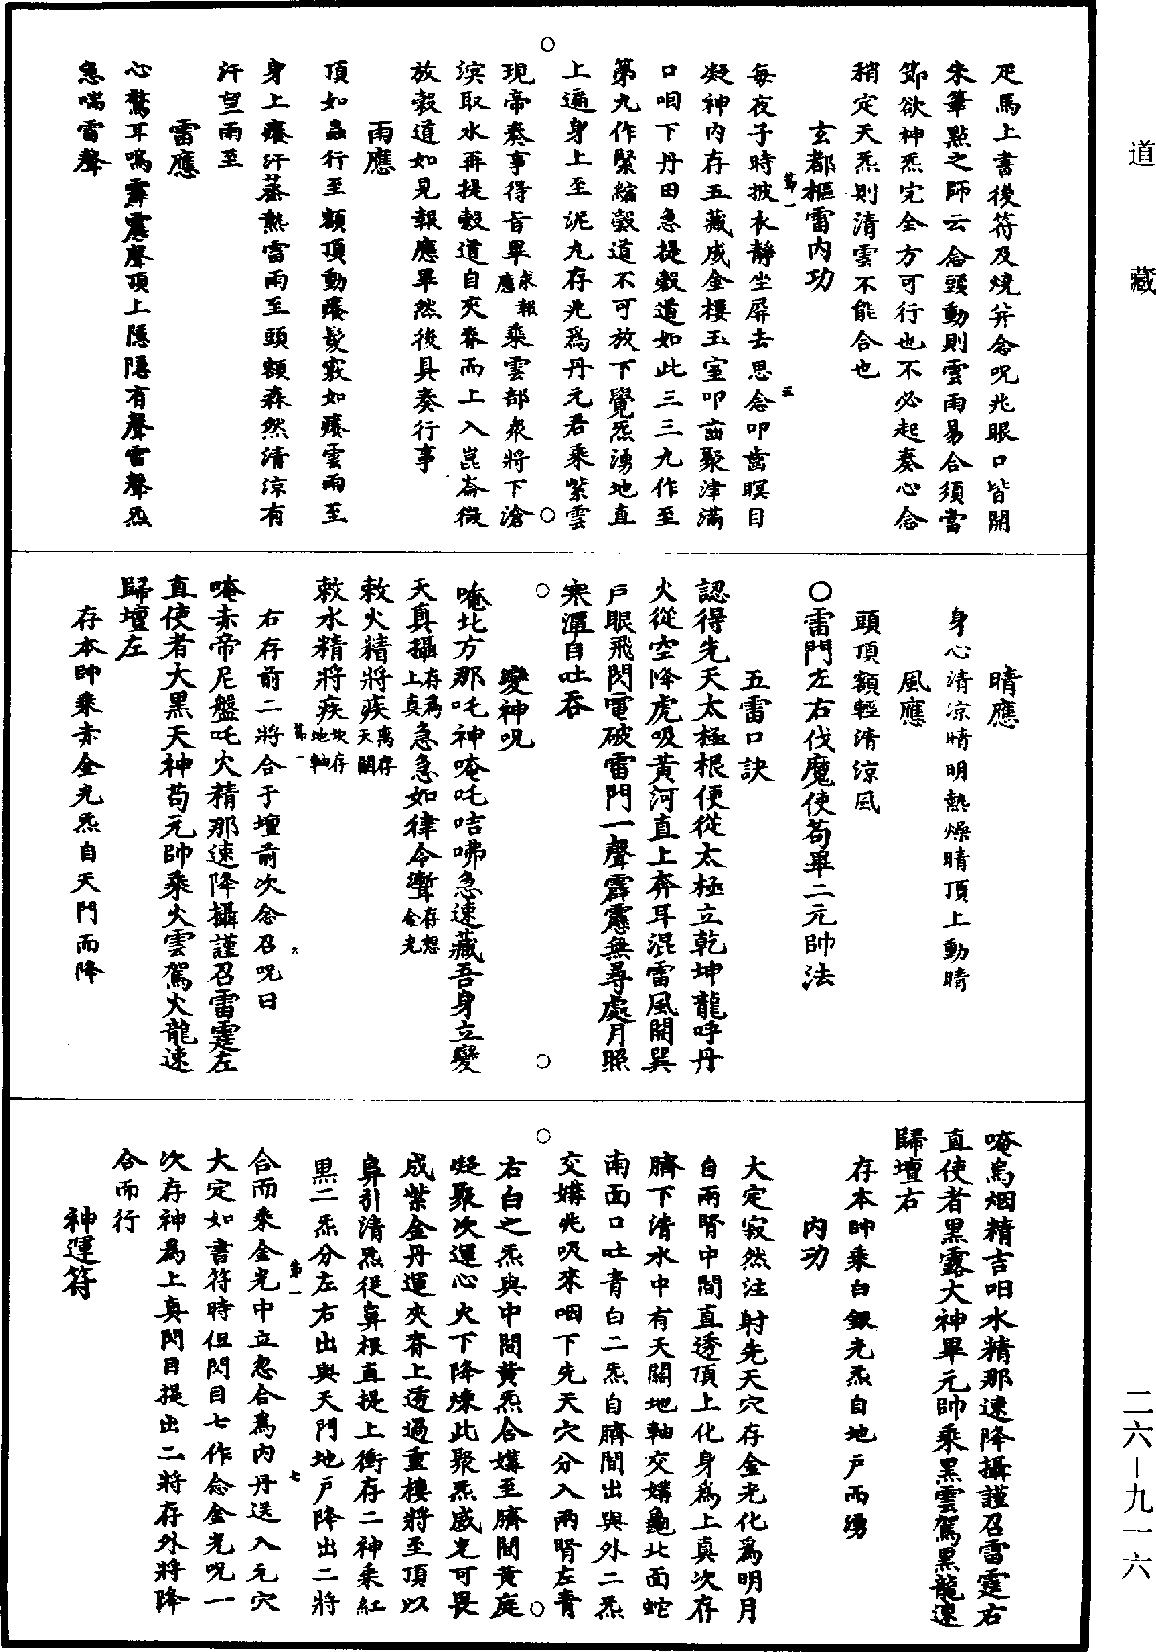 道藏
疋馬上書後符及燒并念呪兆眼口皆開
朱筆點之師云念頭動則雲雨易合須當
節欲神炁完全方可行也不必起奏心念
稍定天炁則清雲不能合也
玄都樞雷内功
第一
每夜子時披衣靜坐屏去思念叩齒瞑目
五
凝神内存五藏成金樓玉室叩齒聚津滿
口咽下丹田急提穀道如此三三九作至
第九作緊縮穀道不可放下覺炁湧地直
上遍身上至泥丸存兆爲丹元君乘紫雲
現帝奏事得旨畢求報應乘雲部衆將下滄
溟取水再提穀道自夾脊而上入崑崙微
放穀道如見報應畢然後具奏行事
雨應
頂如蟲行至額頂動癢髮竅如癢雲雨至
身上癢汗蒸熱雷雨至頭額森然清涼有
汗望雨至
雷應
心驚耳鳴霹靂聲頂上隱隱有聲雷聲炁
急喘雷聲
晴應
身心清涼晴明熱燥晴頂上動晴
風應
頭頂額輕清涼風
○雷門左右伐魔使苟畢二元帥法
五雷口訣
認得先天太極根便從太極立乾坤龍呼丹
火從空降虎吸黃河直上奔耳混雷風開巽
戶眼飛閃電破雷門一聲霹靂無尋處月照
寒潭自吐吞
變神呪
唵北方那吒神唵吒咭咈急速藏吾身立變
天真攝存爲上真急急如律令漸聻存想金光
敕火精將疾离存天關
敕水精將疾坎存地軸
第一
右存前二將合于壇前次念召呪曰
六
唵赤帝尼盤吒火精那速降攝謹召雷霆左
直使者大黑天神苟元帥乘火雲駕火龍速
歸壇左
存本帥乘赤金光炁自天門而降
唵烏烟精吉呬水精那速降攝謹召雷霆右
直使者黑露大神畢元帥乘黑雲駕黑龍速
歸壇右
存本帥乘白銀光炁自地戶而湧
内功
大定寂然注射先天穴存金光化爲明月
自兩腎中間直透頂上化身爲上真次存
臍下清水中有天關地軸交媾龜北面蛇
南面口吐青白二炁自臍間出與外二炁
交媾兆吸來咽下先天穴分入兩腎左青
右白之炁與中間黃炁合媾至臍間黃庭
凝聚次運心火下降煉此聚炁威光可畏
成紫金丹運夾脊上透過重樓將至頂以
鼻引清炁從鼻根直提上衝存二神乘紅
黑二炁分左右出與天門地戶降出二將
第一
七
合而乘金光中立忽合爲内丹送入元穴
大定如書符時但閃目七作念金光呪一
次存神爲上真閃目提出二將存外將降
合而行
神運符
二六—九一六